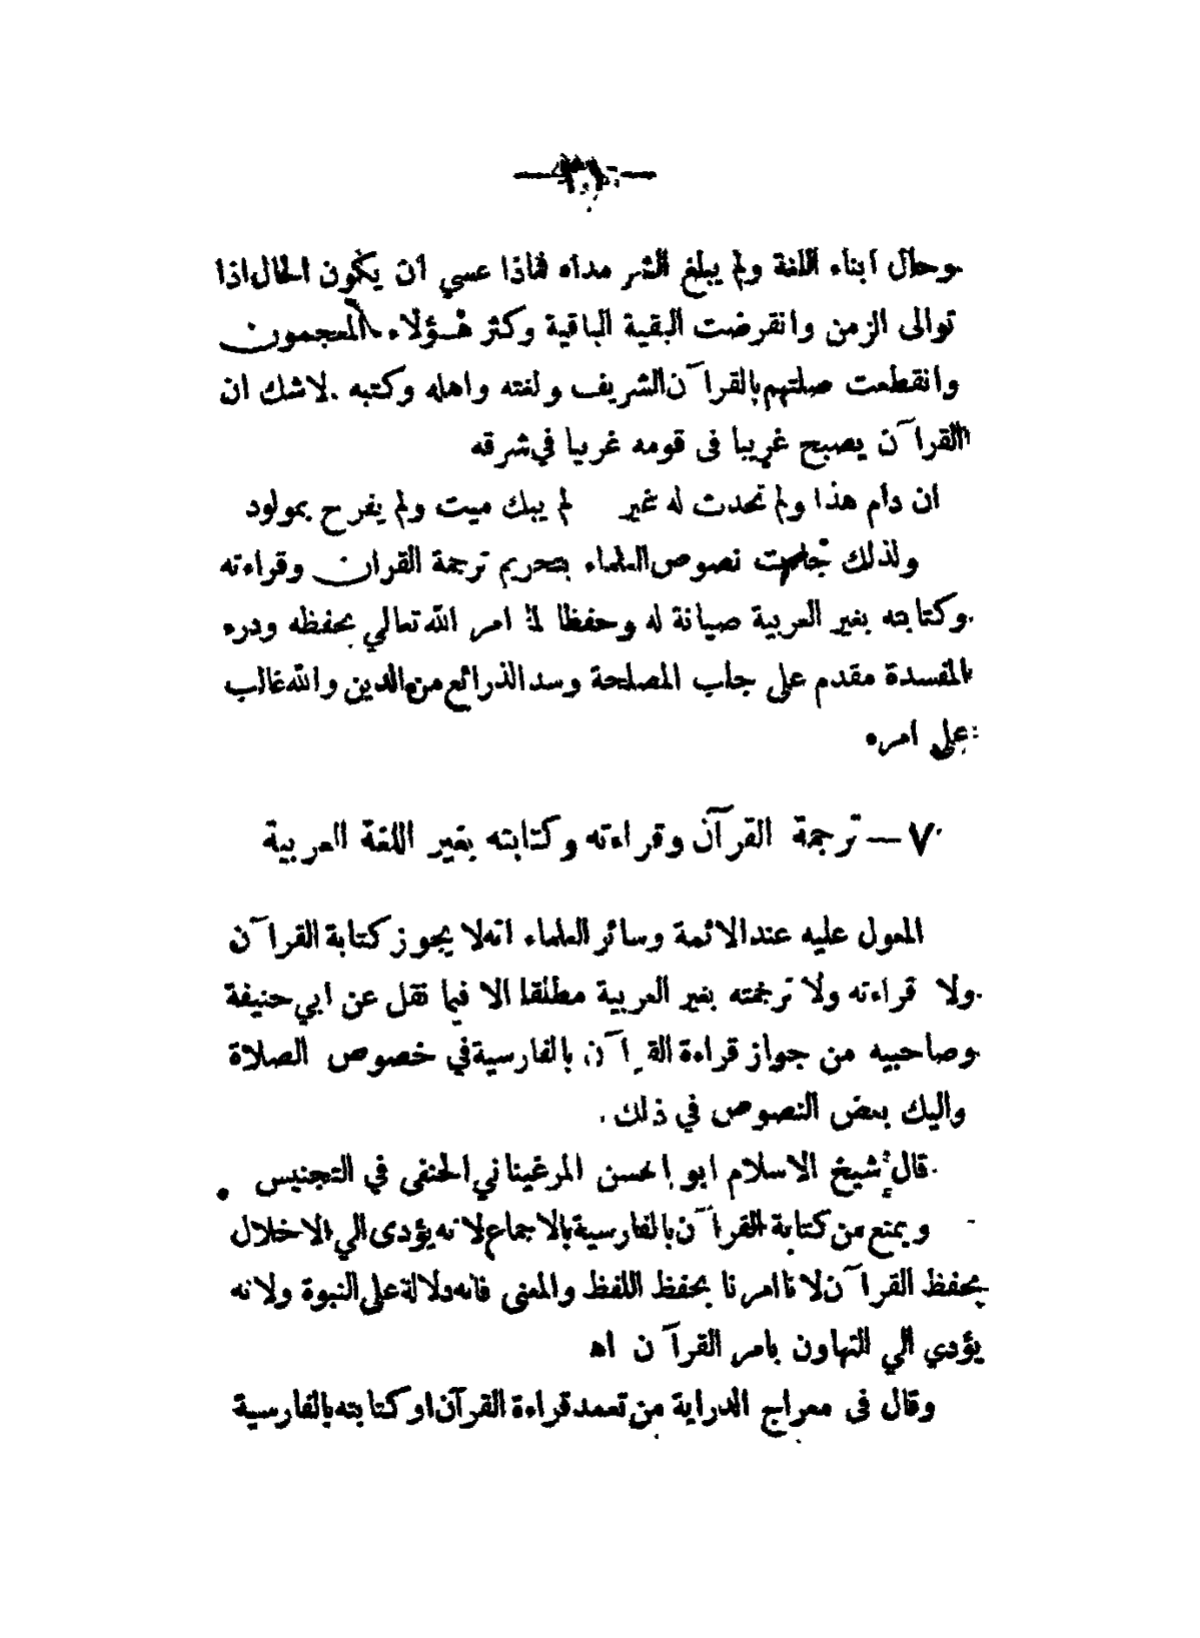 وحال ابناء اللغة ولم يبلغ الشر مداه فماذا عسي أن يكون الحال اذا
توالى الزمن وانقرضت البقية الباقية وكثر هؤلاء المعجمون
وانقطعت صلتهم بالقرآن الشريف ولغته واهله وكتبه . لاشك ان
القرآن يصبح غريبا فى قومه غريبا في شرقه
ان دام هذا ولم تحدث له غير لم يبك ميت ولم يفرح بمولود
ولذلك نصوص العلماء بتحريم ترجمة القران وقراءته
وكتابته بغير العربية صيانة له وحفظا لما امر الله تعالي بحفظه ودرء
المفسدة مقدم على جلب المصلحة وسد الذرائع من الدين والله غالب
على امره
٧ — ترجمة القرآن وقراءته وكتابته بغير اللغة العربية
المعول عليه عند الائمة وسائر العلماء انه لا يجوز كتابة القرآن
ولا قراءته ولا ترجمته بغير العربية مطلقا الا فيما نقل عن ابي حنيفة
وصاحبيه من جواز قراءة القرآن بالفارسية في خصوص الصلاة
واليك بعض النصوص في ذلك .
قال شيخ الاسلام ابو الحسن المرغيناني الحنفى في التجنيس
ويمنع من كتابة القرآن بالفارسية بالاجماع لانه يؤدى الي الاخلال
بحفظ القرآن لانا امرنا بحفظ اللفظ والمعنى فانه دلالة على النبوة ولانه
يؤدي الي التهاون بامر القرآن اه
وقال فى معراج الدراية من تعمد قراءة القرآن او كتابته بالفارسية